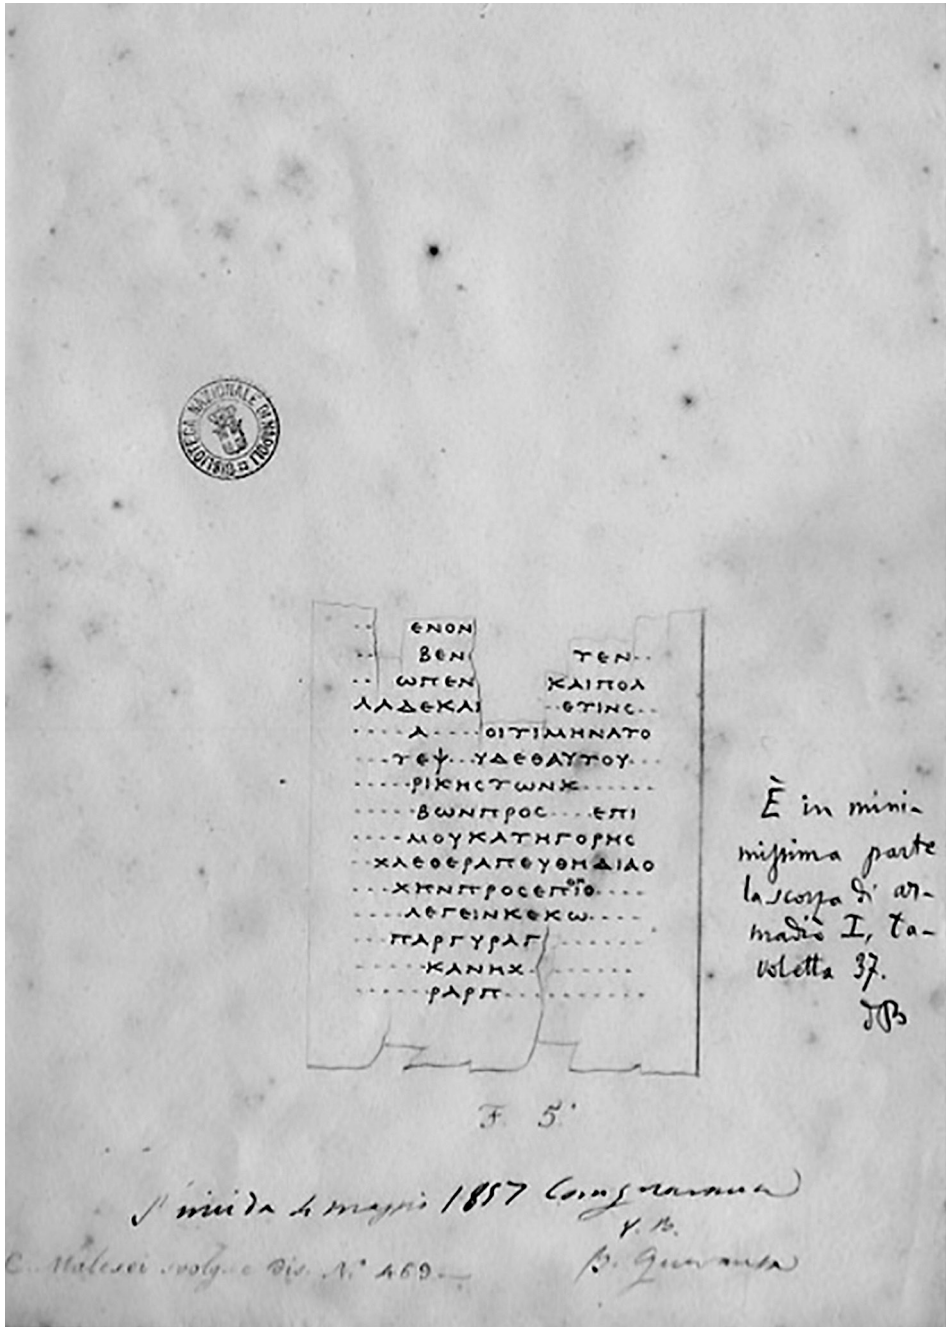 BIBLIOTECA NAZIONALE DI NAPOLI
·· ΕΝΟΝ
·· ΒΕΝ ΥΕΝ··
·· ΩΠΕΝ ΚΑΙΠΟΛ
ΛΛΔΕΚΑΙ ··ΕΤΙΝC··
····Α····ΟΙΤΙΜΗΝΑΥΟ
···ΤΕΨ··ΥΔΕΘΑΥΤΟΥ···
····ΡΙΚΗCΤΩΝΚ······
····ΒΩΝΠΡΟC···ΕΠΙ
····ΜΟΥΚΑΤΗΓΟΡΗC
··ΧΛΕΘΕΡΑΠΕΥΘΗΔΙΑΟ
···ΧΗΝΠΡΟCΕΠΙΘ····
····ΛΕΓΕΙΝΚΕΚΩ·····
···ΠΑΡΓΥΡΑΓ ·······
······ΚΑΝΗΧ ·······
······ΡΑΡΠ···········
È in mini-
missima parte
la scorza di ar-
madio I, ta-
voletta 37.
dB
F. 5.
1857
V. B.
B. Quaranta
C. Malesci svolg. e dis. Nº 469